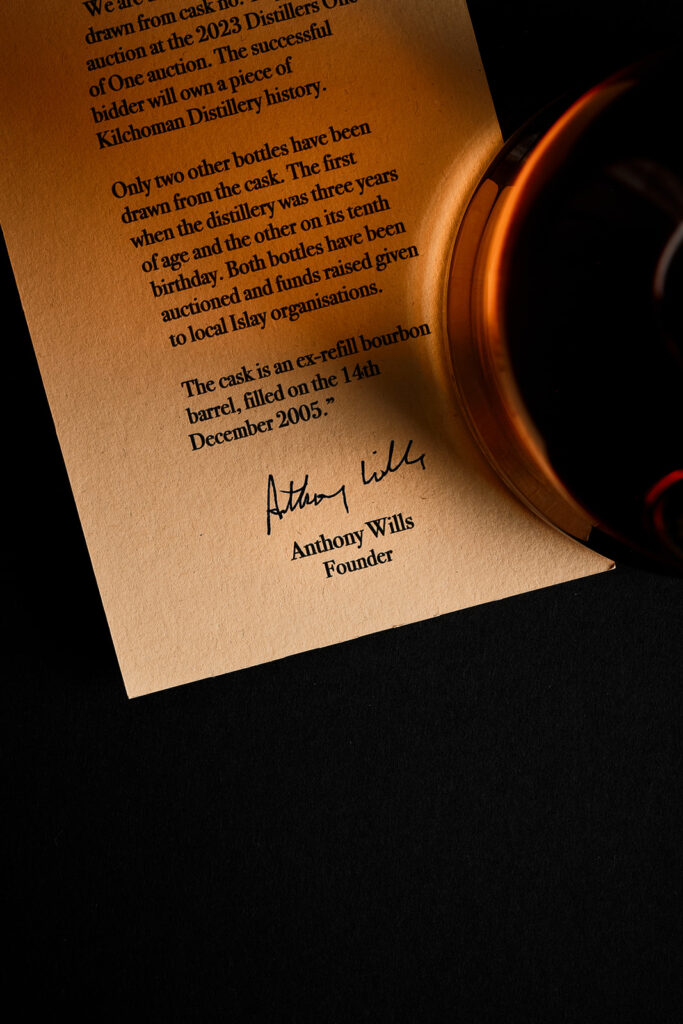 We are
drawn from cask no.
auction at the 2023 Distillers One
of One auction. The successful
bidder will own a piece of
Kilchoman Distillery history.
Only two other bottles have been
drawn from the cask. The first
when the distillery was three years
of age and the other on its tenth
birthday. Both bottles have been
auctioned and funds raised given
to local Islay organisations.
The cask is an ex-refill bourbon
barrel, filled on the 14th
December 2005.”
Anthony Wills
Anthony Wills
Founder